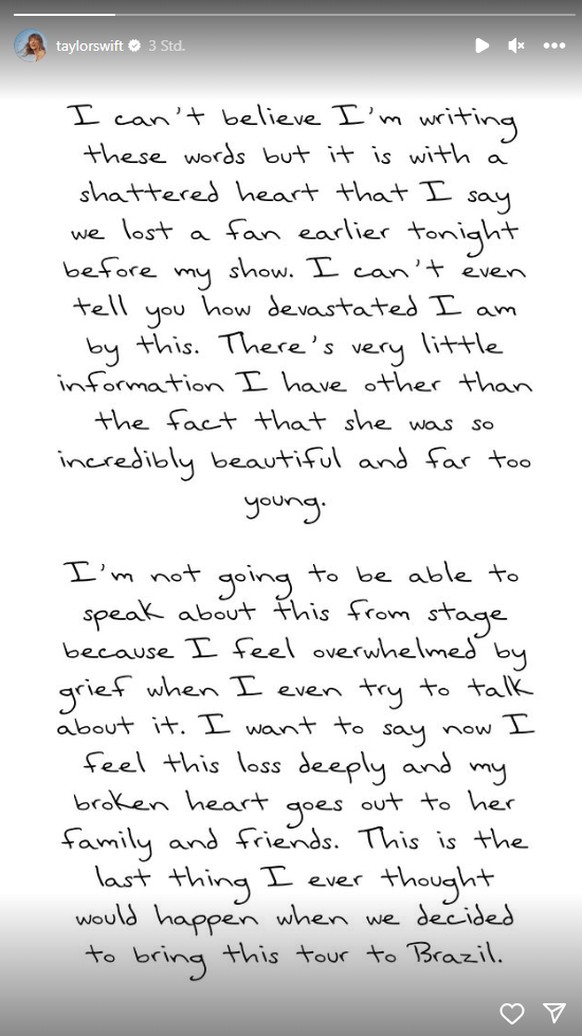 taylorswift 3 Std.
I can't believe I'm writing
these words but it is with a
shattered heart that I say
we lost a fan earlier tonight
before my show. I can't even
tell you how devastated I am
by this. There's very little
information I have other than
the fact that she was so
incredibly beautiful and far too
young.
I'm not going to be able to
speak about this from stage
because I feel overwhelmed by
grief when I even try to talk
about it. I want to say now I
feel this loss deeply and my
broken heart goes out to her
family and friends. This is the
last thing I ever thought
would happen when we decided
to bring this tour to Brazil.